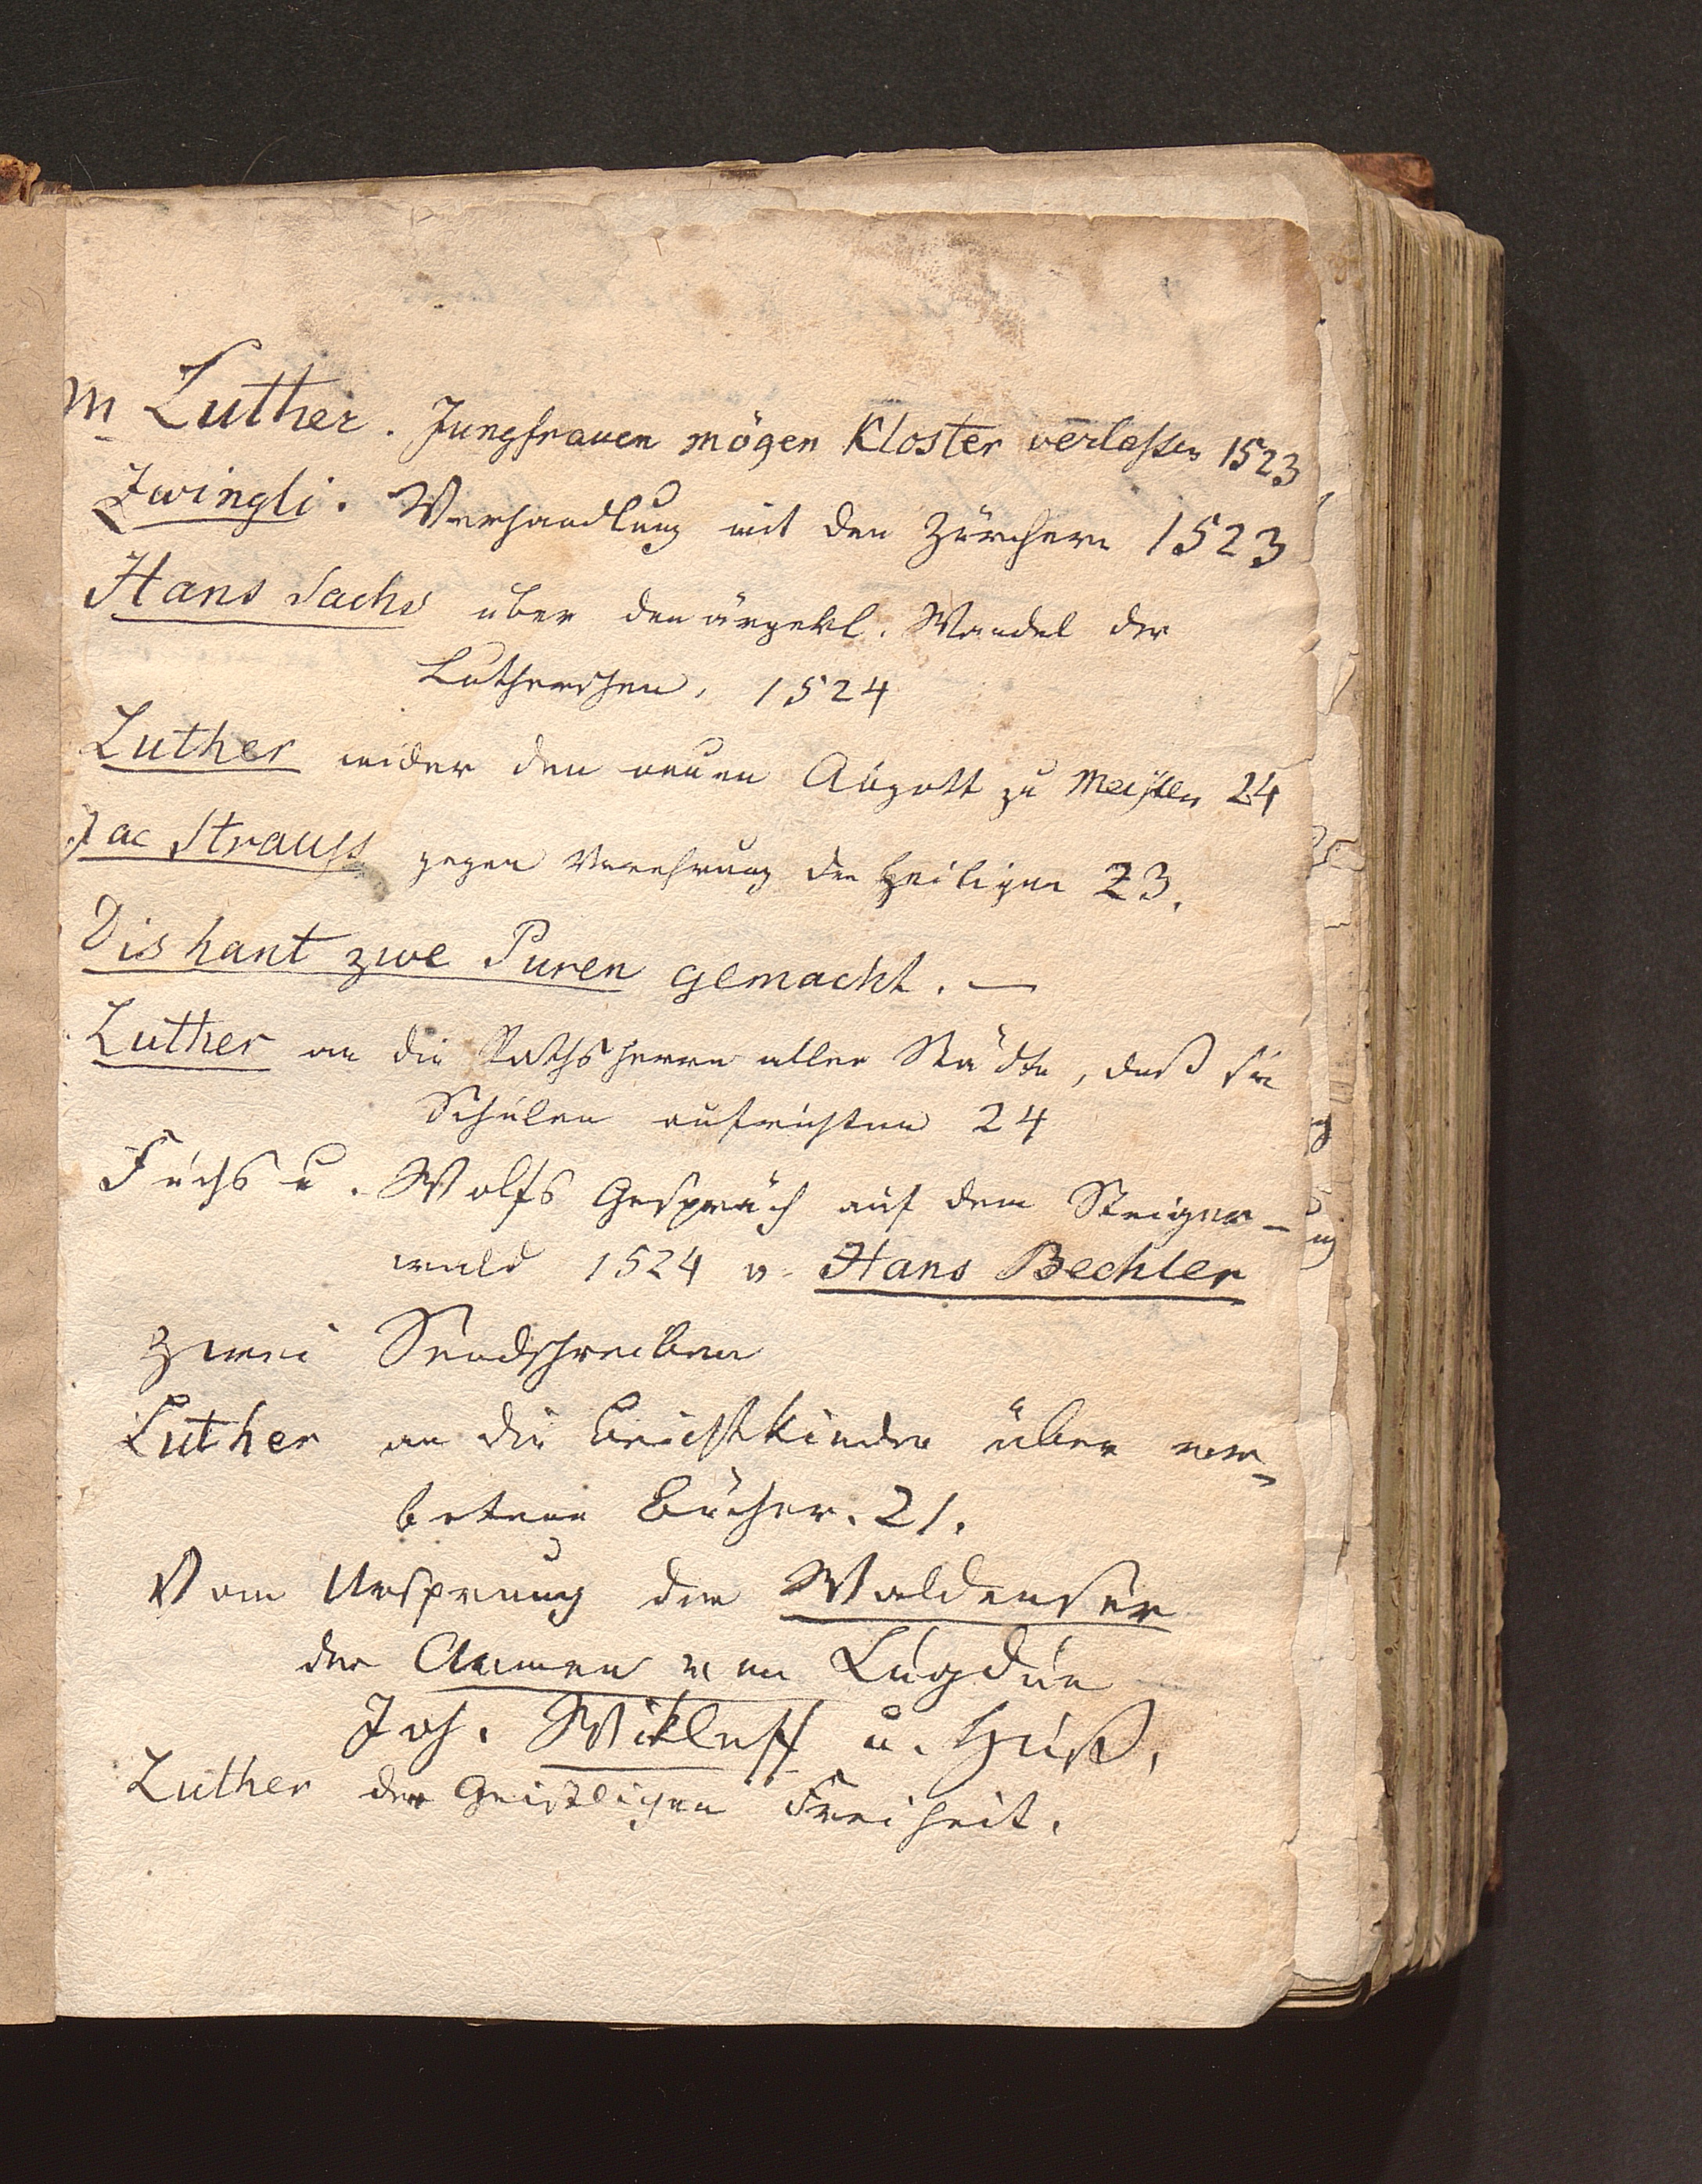 M Luther. Jungfrauen mögen Kloster verlaßen 1523
Zwingli. Verhandlung mit den Zürchern 1523
Hans Sachs über den ärgerl. Wandel der
Lutherschen, 1524
Luther wider den neuen Abgott zu Meißen 24
Jac Strauss gegen Verehrung der Heiligen 23.
Dis hant zwe Puren gemacht. —
Luther an die Rathsherrn aller Städte, daß sie
Schulen aufrichten 24
Fuchs u. Wolfs Gespräch auf dem Steiger-
wald 1524 v. Hans Bechler
Zwei Sendschreiben
Luther an die Beichtkinder über ver-
botene Bücher. 21.
Vom Ursprung der Waldenser
der Armen von Lugdun
Joh. Wikleff u. Huß.
Luther der Geistligen Freiheit.